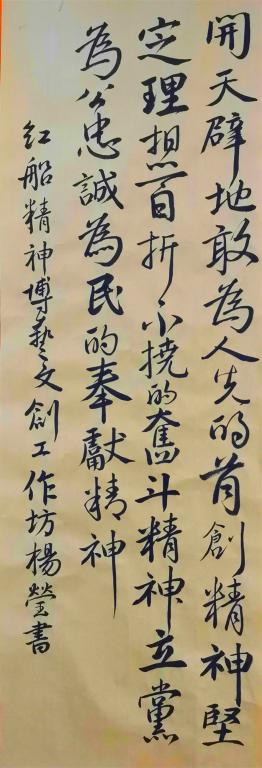 開天辟地敢為人先的首創精神堅
定理想百折不撓的奮鬥精神立黨
為公忠誠為民的奉獻精神
红船精神博藝文創工作坊楊瑩書